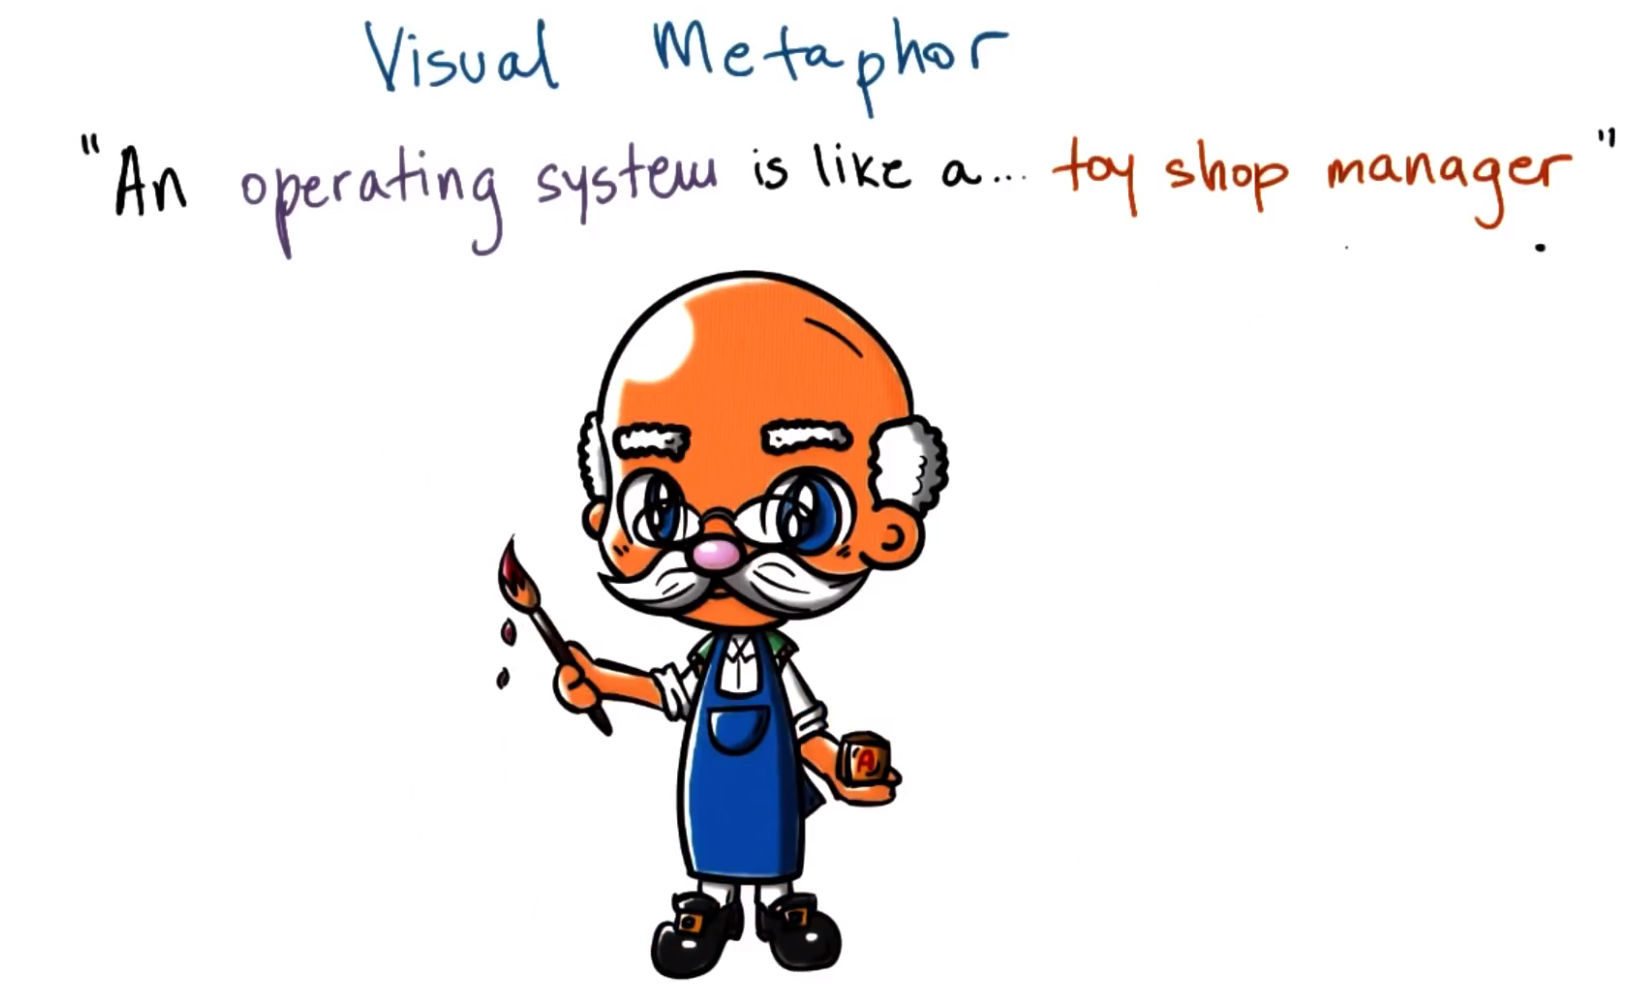 Visual Metaphor
"An operating system is like a... toy shop manager"
A